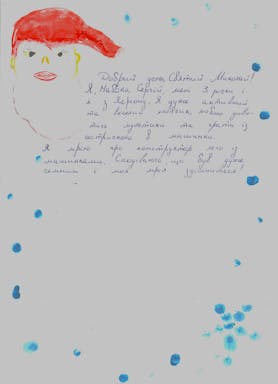 Добрий день Святий Миколай!
Я, Сергій, мені 3 роки і
я з Херсону. Я дуже активний
та веселий хлопчик, люблю диви-
тись мультики та грати із
сестричкою в машинки.
Я мрію про конструктор лего із
машинками. Сподіваюсь, що був дуже
чемним і моя мрія здійсниться!